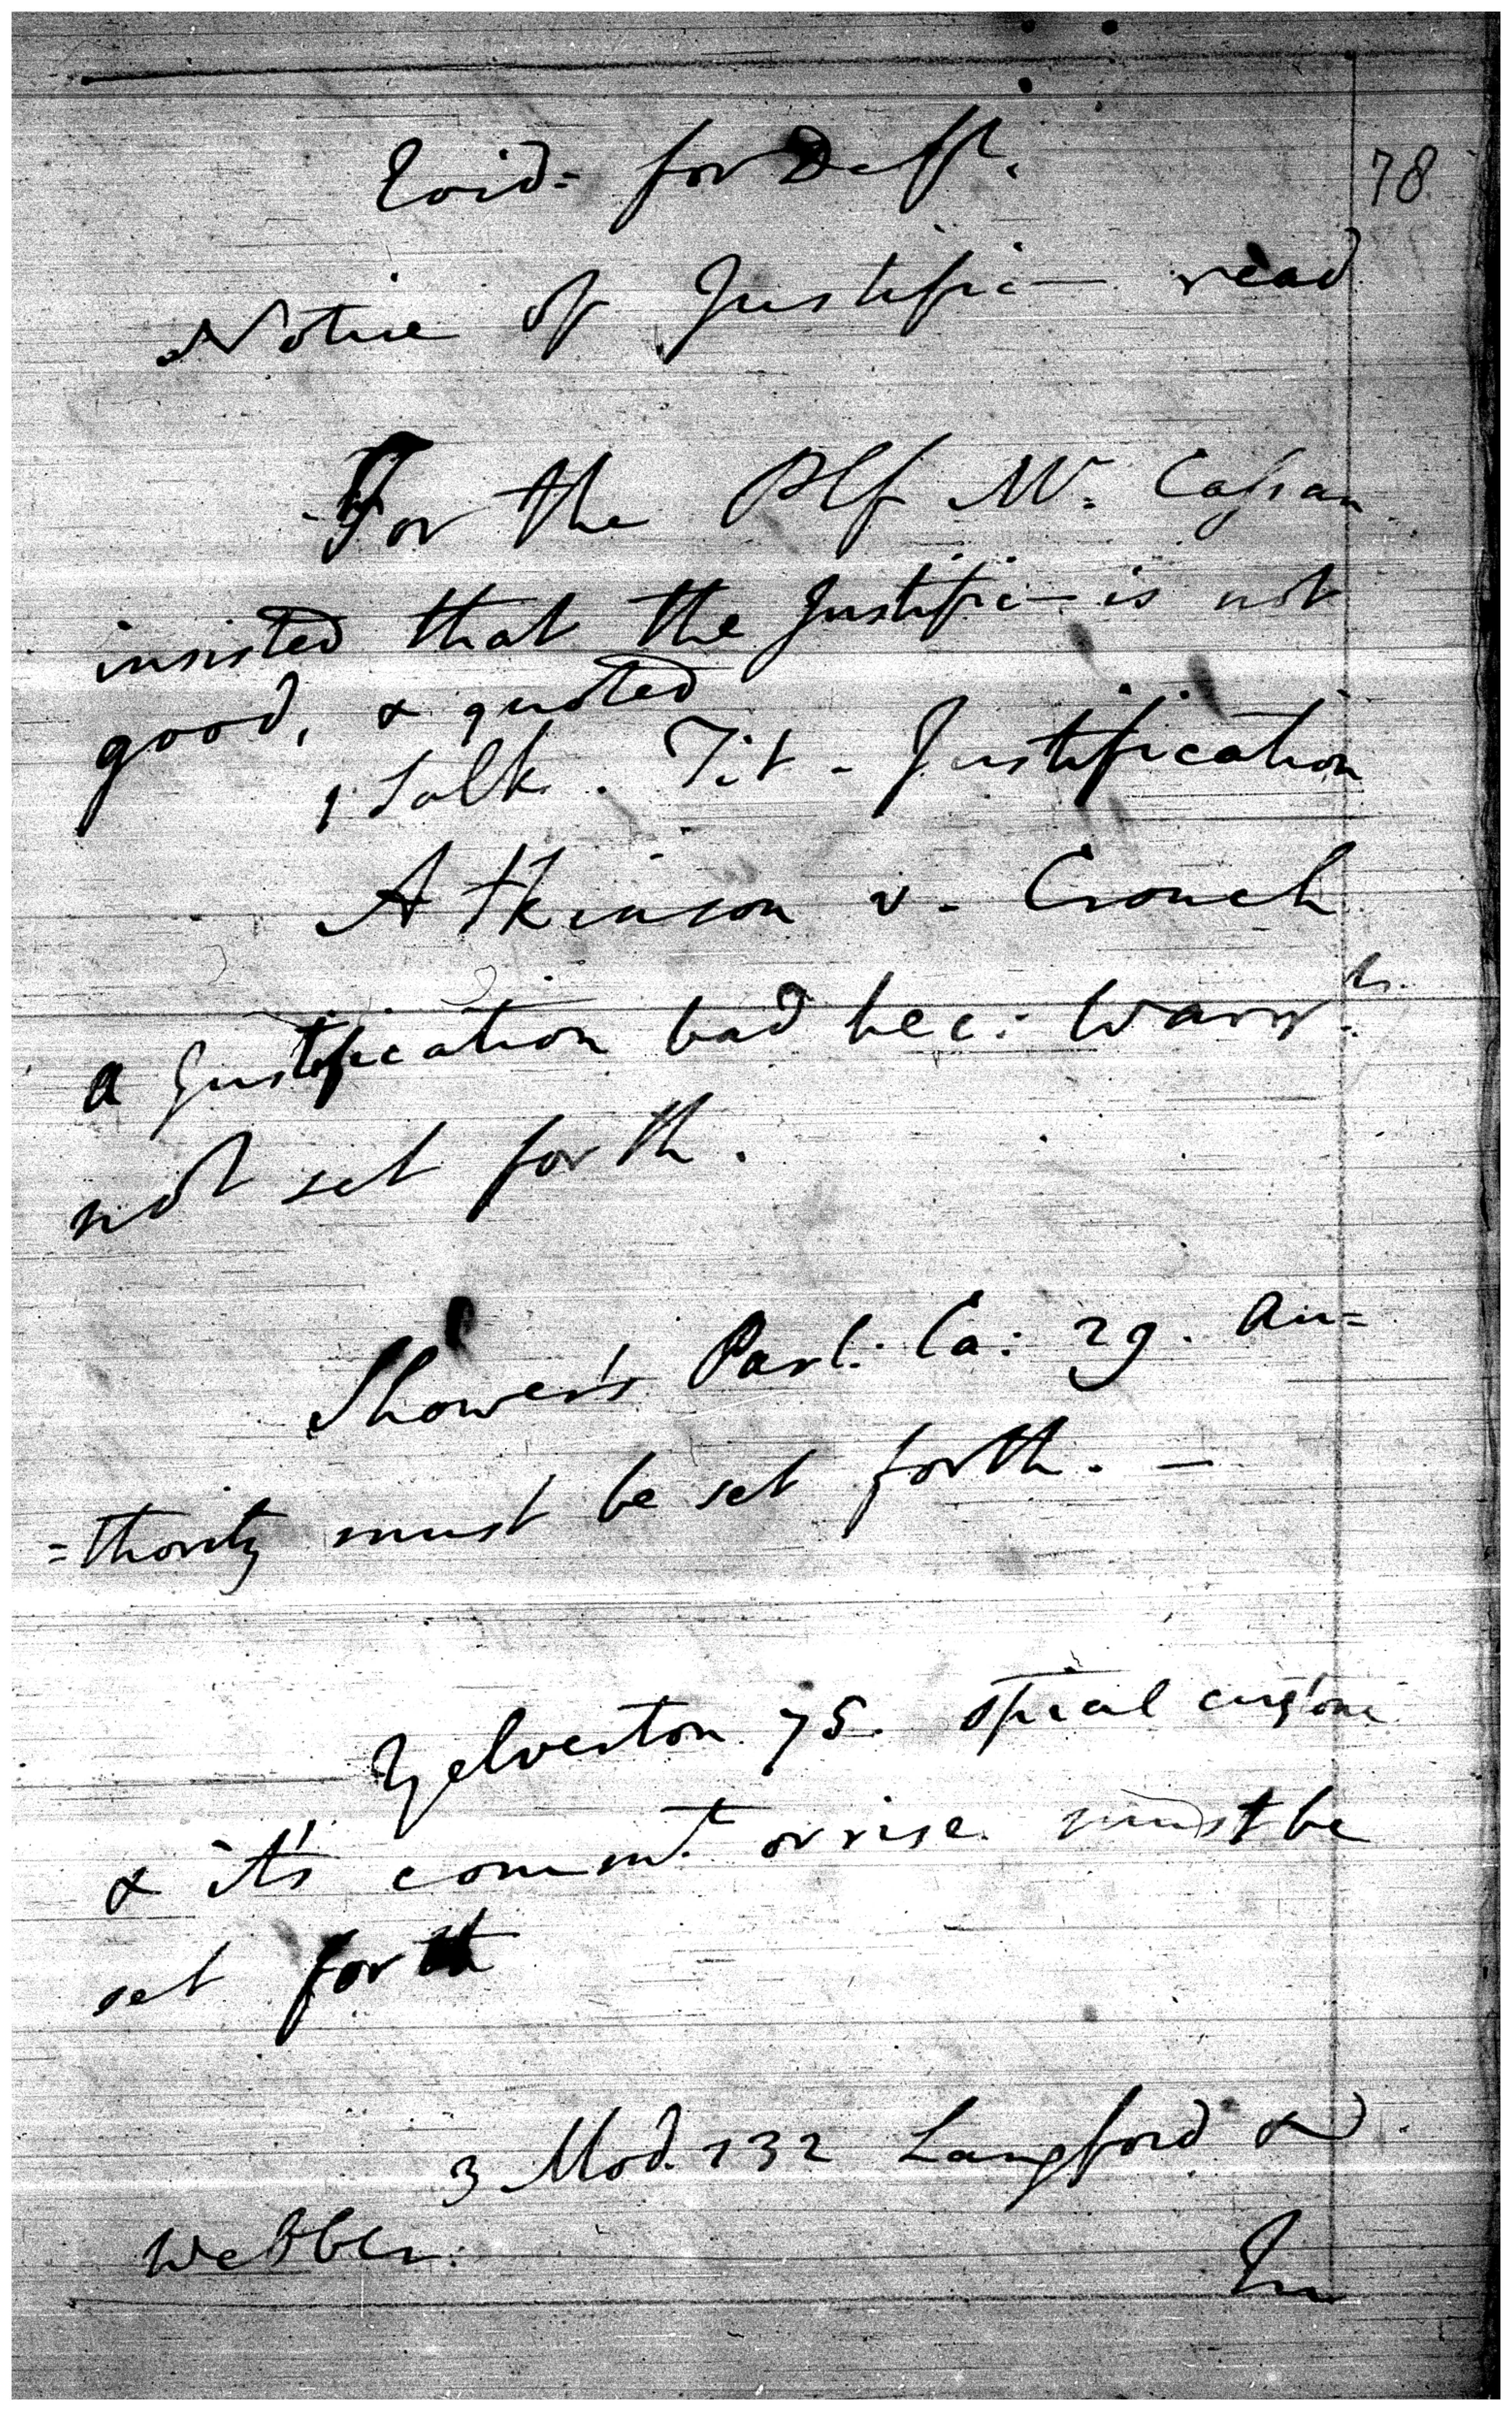 78
Evid= for Deft.
Notice of Justific— read
For the Plf Mr. Cassan
insisted that the Justific— is not
good, & quoted
1 Salk. Tit - Justification
Atkinson v. Crouch
a Justification bad bec: Warrts.
not set forth.
Shower's Parl: Ca: 29. Au=
=thority must be set forth. —
Yelverton 75. special custom
& it's commt. or rise must be
set forth
3 Mod. 132 Langford &
Webber.
In